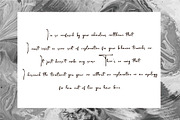 I'm so confused by your absolute, ruthless that
I must exist in some sort of explanation for your blame towards me
It just doesn't make any sense There's no way that
I deserved the treatment you gave me without an explanation or an apology
for how out of line you have been